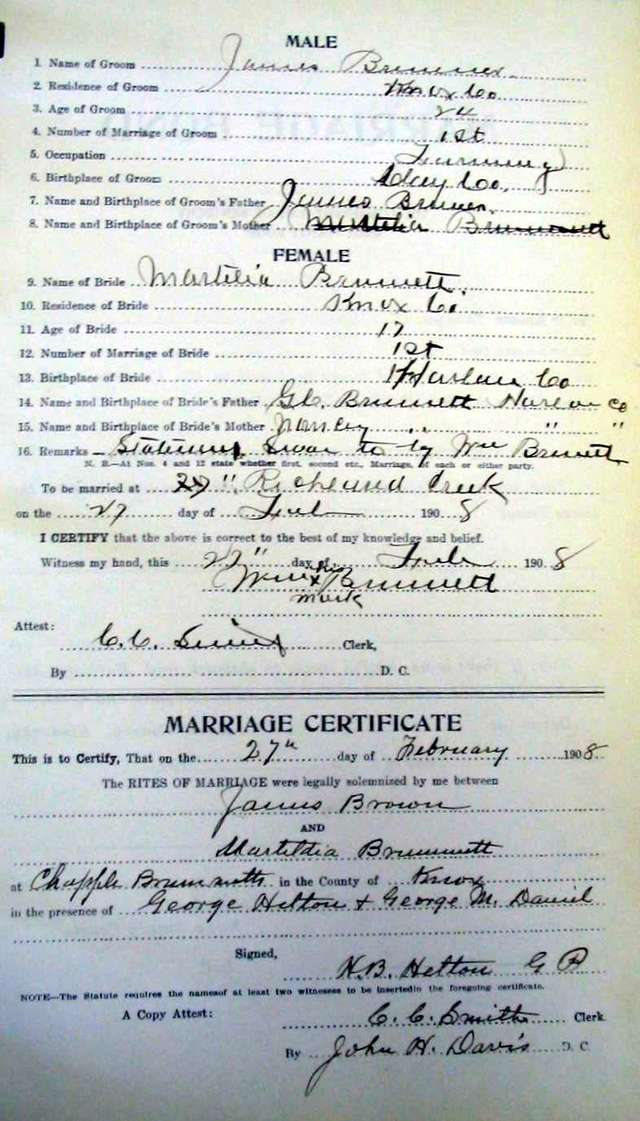 MALE
1. Name of Groom James Brunner
2. Residence of Groom Knox Co.
3. Age of Groom 24
4. Number of Marriage of Groom 1st
5. Occupation Farming
6. Birthplace of Groom Clay Co.
7. Name and Birthplace of Groom's Father James
8. Name and Birthplace of Groom's Mother
FEMALE
9. Name of Bride Brumett.
10. Residence of Bride Knox Co.
11. Age of Bride 17
12. Number of Marriage of Bride 1st
13. Birthplace of Bride Harlan Co
14. Name and Birthplace of Bride's Father Brumett Harlan Co
15. Name and Birthplace of Bride's Mother Nancy " "
16. Remarks Statement Swar to by Wm Brumett
N. B.—At Nos. 4 and 12 state whether first, second etc., Marriage, of each or either party.
To be married at Richland Creek
on the 27 day of Feb 1908
I CERTIFY that the above is correct to the best of my knowledge and belief.
Witness my hand, this 27" day of Feb 1908
his
Wm x Brummett
mark
Attest:
C. C. Smith Clerk,
By D. C.
MARRIAGE CERTIFICATE
This is to Certify, That on the 27th day of February 1908
The RITES OF MARRIAGE were legally solemnized by me between
James Brown
AND
Martildia Brummett
at Chapple Brummetts in the County of Knox
in the presence of George Helton & George M. Daniel
Signed,
H. B. Helton G P
NOTE—The Statute requires the namesof at least two witnesses to be insertedin the foregoing certificate.
A Copy Attest: C. C. Smith Clerk
By John H. Davis D. C.